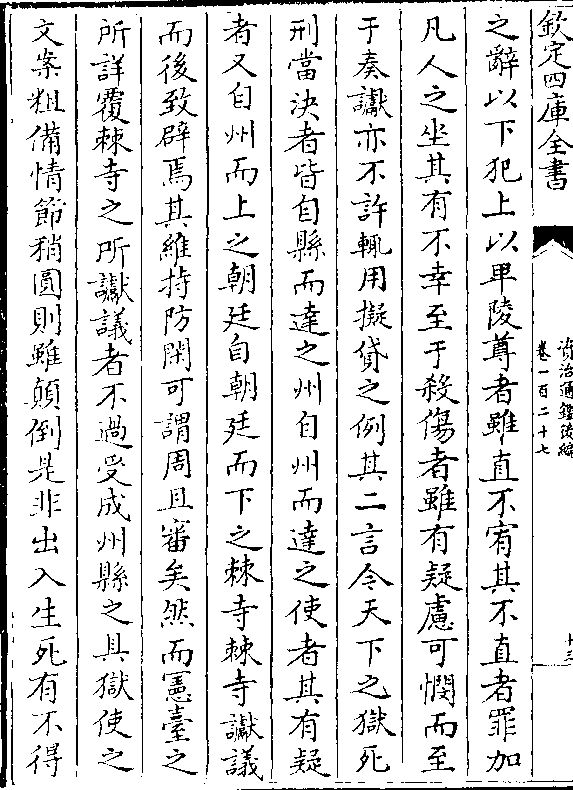 欽定四庫全書
資治通鑑後編
卷一百二十七
十三
之辭以下犯上以卑陵尊者雖直不宥其不直者罪加
凡人之坐其有不幸至于殺傷者雖有疑慮可憫而至
于奏讞亦不許輒用擬貸之例其二言今天下之獄死
刑當決者皆自縣而達之州自州而達之使者其有疑
者又自州而上之朝廷自朝廷而下之棘寺棘寺讞議
而後致辟焉其維持防閑可謂周且審矣然而憲臺之
所詳覆棘寺之所讞議者不過受成州縣之具獄使之
文案粗備情節稍圓則雖顛倒是非出入生死有不得